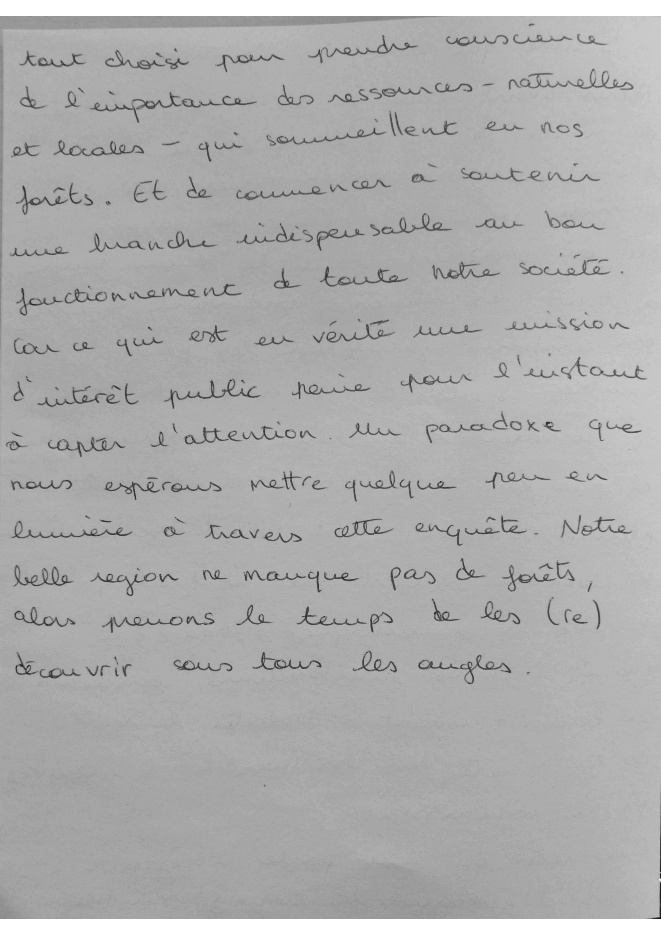 tout choisi pour prendre conscience
de l'importance des ressources - naturelles
et locales - qui sommeillent en nos
forêts. Et de commencer à soutenir
une branche indispensable au bon
fonctionnement de toute notre société.
Car ce qui est en vérité une mission
d'intérêt public peine pour l'instant
à capter l'attention. Un paradoxe que
nous espérons mettre quelque peu en
lumière à travers cette enquête. Notre
belle region ne manque pas de forêts,
alors prenons le temps de les (re)
découvrir sous tous les angles.